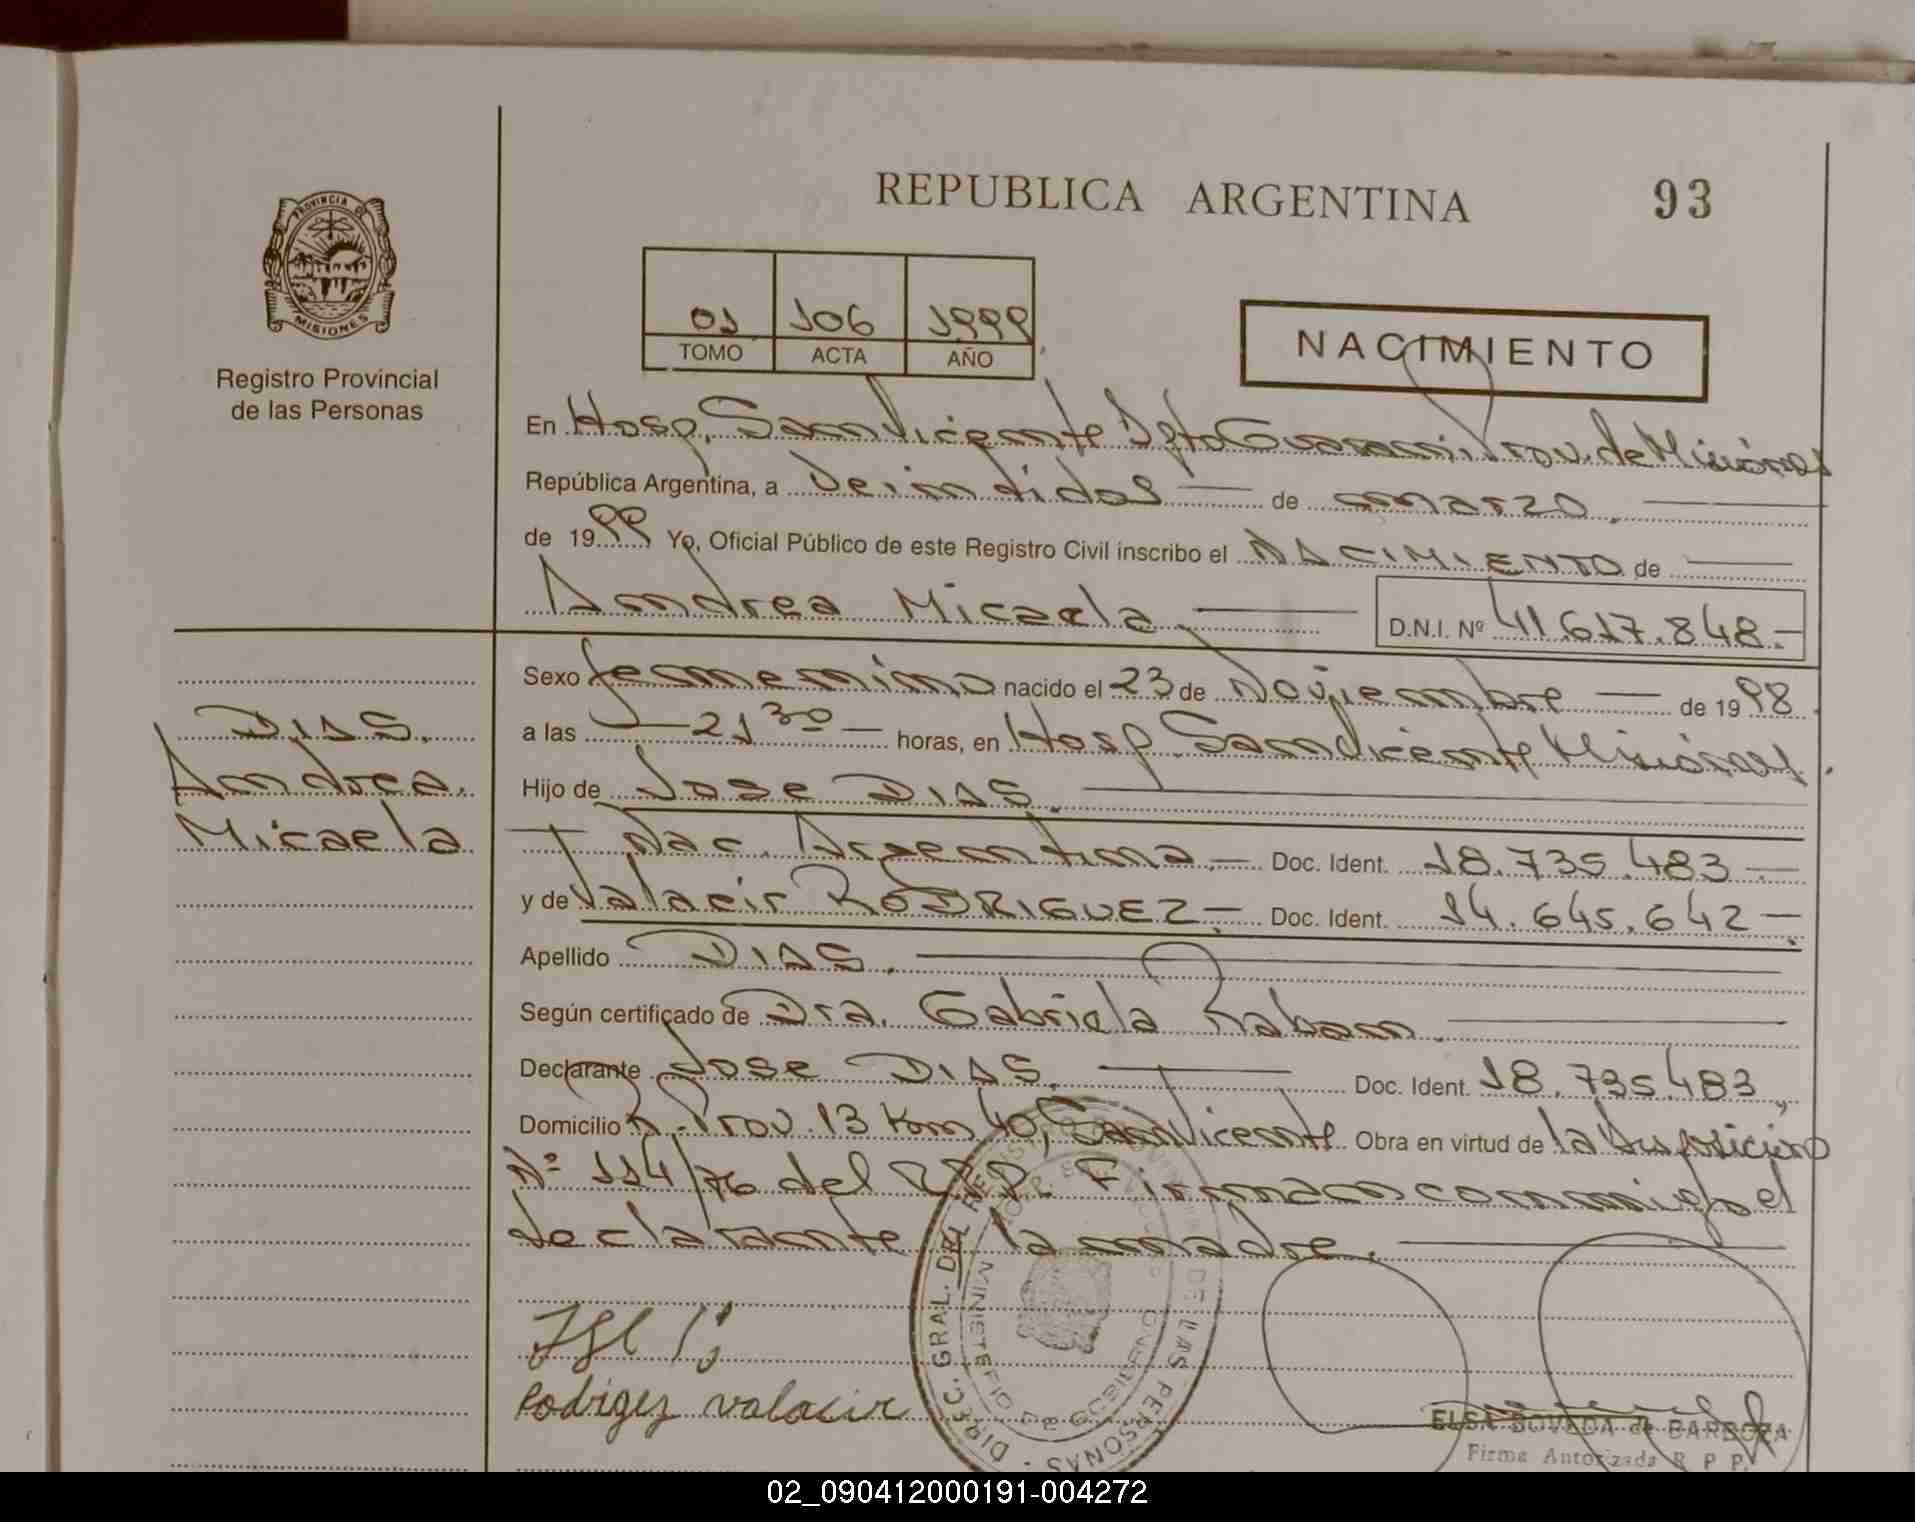 REPUBLICA ARGENTINA 93
PROVINCIA DE
MISIONES
Registro Provincial
de las Personas
01 106 1999
TOMO ACTA AÑO
NACIMIENTO
En Hosp. San Vicente Dpto Guarani Prov. de Misiones
República Argentina, a Veintidos de marzo.
de 1999 Yo, Oficial Público de este Registro Civil inscribo el NACIMIENTO de
Andrea Micaela. D.N.I. Nº 41.617.848.-
Sexo femenino nacido el 23 de Noviembre de 1998
a las 21 30 horas, en Hosp. San Vicente Misiones.
Hijo de Jose DIAS.
Nac. Argentina.- Doc. Ident. 18.735.483 -
y de Valacir RODRIGUEZ.- Doc. Ident. 14.645.642 -
Apellido DIAS.
Según certificado de Dra. Gabriela Raban.
Declarante Jose DIAS. Doc. Ident. 18.735.483,
Domicilio R. Prov. 13 Km 40, San Vicente Obra en virtud de la Disposición
Nº 114/76 del R.P.P. Firman conmigo el
declarante, la madre.
DIAS.
Andrea
Micaela
Rodrigez valacir
DIREC. GRAL. DEL REGISTRO PROVINCIAL DE LAS PERSONAS
MINISTERIO DE GOBIERNO
ELSA BOVEDA de BARBOZA
Firma Autorizada R P P.
02_090412000191-004272